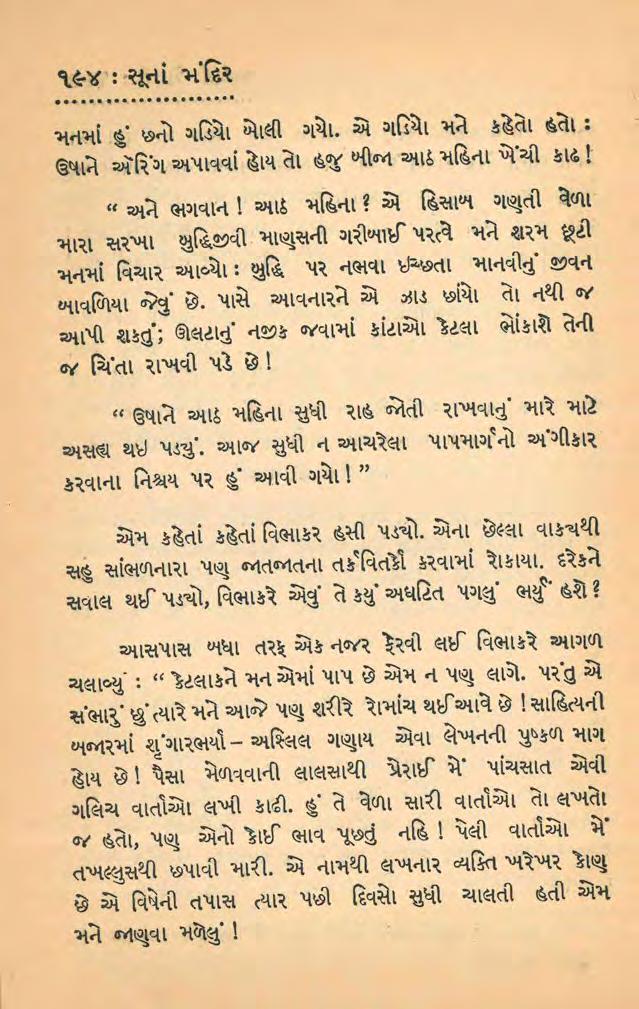 ૧૯૪ : સૂનાં મંદિર
મનમાં હું છનો ગડિયો બોલી ગયો. એ ગડિયો મને કહેતો હતો :
ઉષાને એંરિંગ અપાવવાં હોય તો હજુ બીજા આઠ મહિના ખેંચી કાઢ !
“ અને ભગવાન ! આઠ મહિના ? એ હિસાબ ગણતી વેળા
મારા સરખા બુદ્ધિજીવી માણસની ગરીબાઈ પરત્વે મને શરમ છૂટી
મનમાં વિચાર આવ્યો : બુદ્ધિ પર નભવા ઇચ્છતા માનવીનું જીવન
બાવળિયા જેવું છે. પાસે આવનારને એ ઝાડ છાંયો તો નથી જ
આપી શકતું; ઊલટાનું નજીક જવામાં કાંટાઓ કેટલા ભોંકાશે તેની
જ ચિંતા રાખવી પડે છે !
“ ઉષાને આઠ મહિના સુધી રાહ જોતી રાખવાનું મારે માટે
અસહ્ય થઇ પડ્યું. આજ સુધી ન આચરેલા પાપમાર્ગનો અંગીકાર
કરવાના નિશ્ચય પર હું આવી ગયો ! ”
એમ કહેતાં કહેતાં વિભાકર હસી પડ્યો. એના છેલ્લા વાક્યથી
સહુ સાંભળનારા પણ જાતજાતના તર્કવિતર્કો કરવામાં રોકાયા. દરેકને
સવાલ થઈ પડ્યો, વિભાકરે એવું તે કયું અઘટિત પગલું ભર્યું હશે ?
આસપાસ બધા તરફ એક નજર ફેરવી લઈ વિભાકરે આગળ
ચલાવ્યું : “ કેટલાકને મન એમાં પાપ છે એમ ન પણ લાગે. પરંતુ એ
સંભારું છું ત્યારે મને આજે પણ શરીરે રોમાંચ થઈ આવે છે ! સાહિત્યની
બજારમાં શૃંગારભર્યા – અસ્લિલ ગણાય એવા લેખનની પુષ્કળ માગ
હોય છે ! પૈસા મેળવવાની લાલસાથી પ્રેરાઈ મેં પાંચસાત એવી
ગલિચ વાર્તાઓ લખી કાઢી. હું તે વેળા સારી વાર્તાઓ તો લખતો
જ હતો, પણ એનો કોઈ ભાવ પૂછતું નહિ ! પેલી વાર્તાઓ મેં
તખલ્લુસથી છપાવી મારી. એ નામથી લખનાર વ્યક્તિ ખરેખર કોણ
છે એ વિષેની તપાસ ત્યાર પછી દિવસો સુધી ચાલતી હતી એમ
મને જાણવા મળેલું !